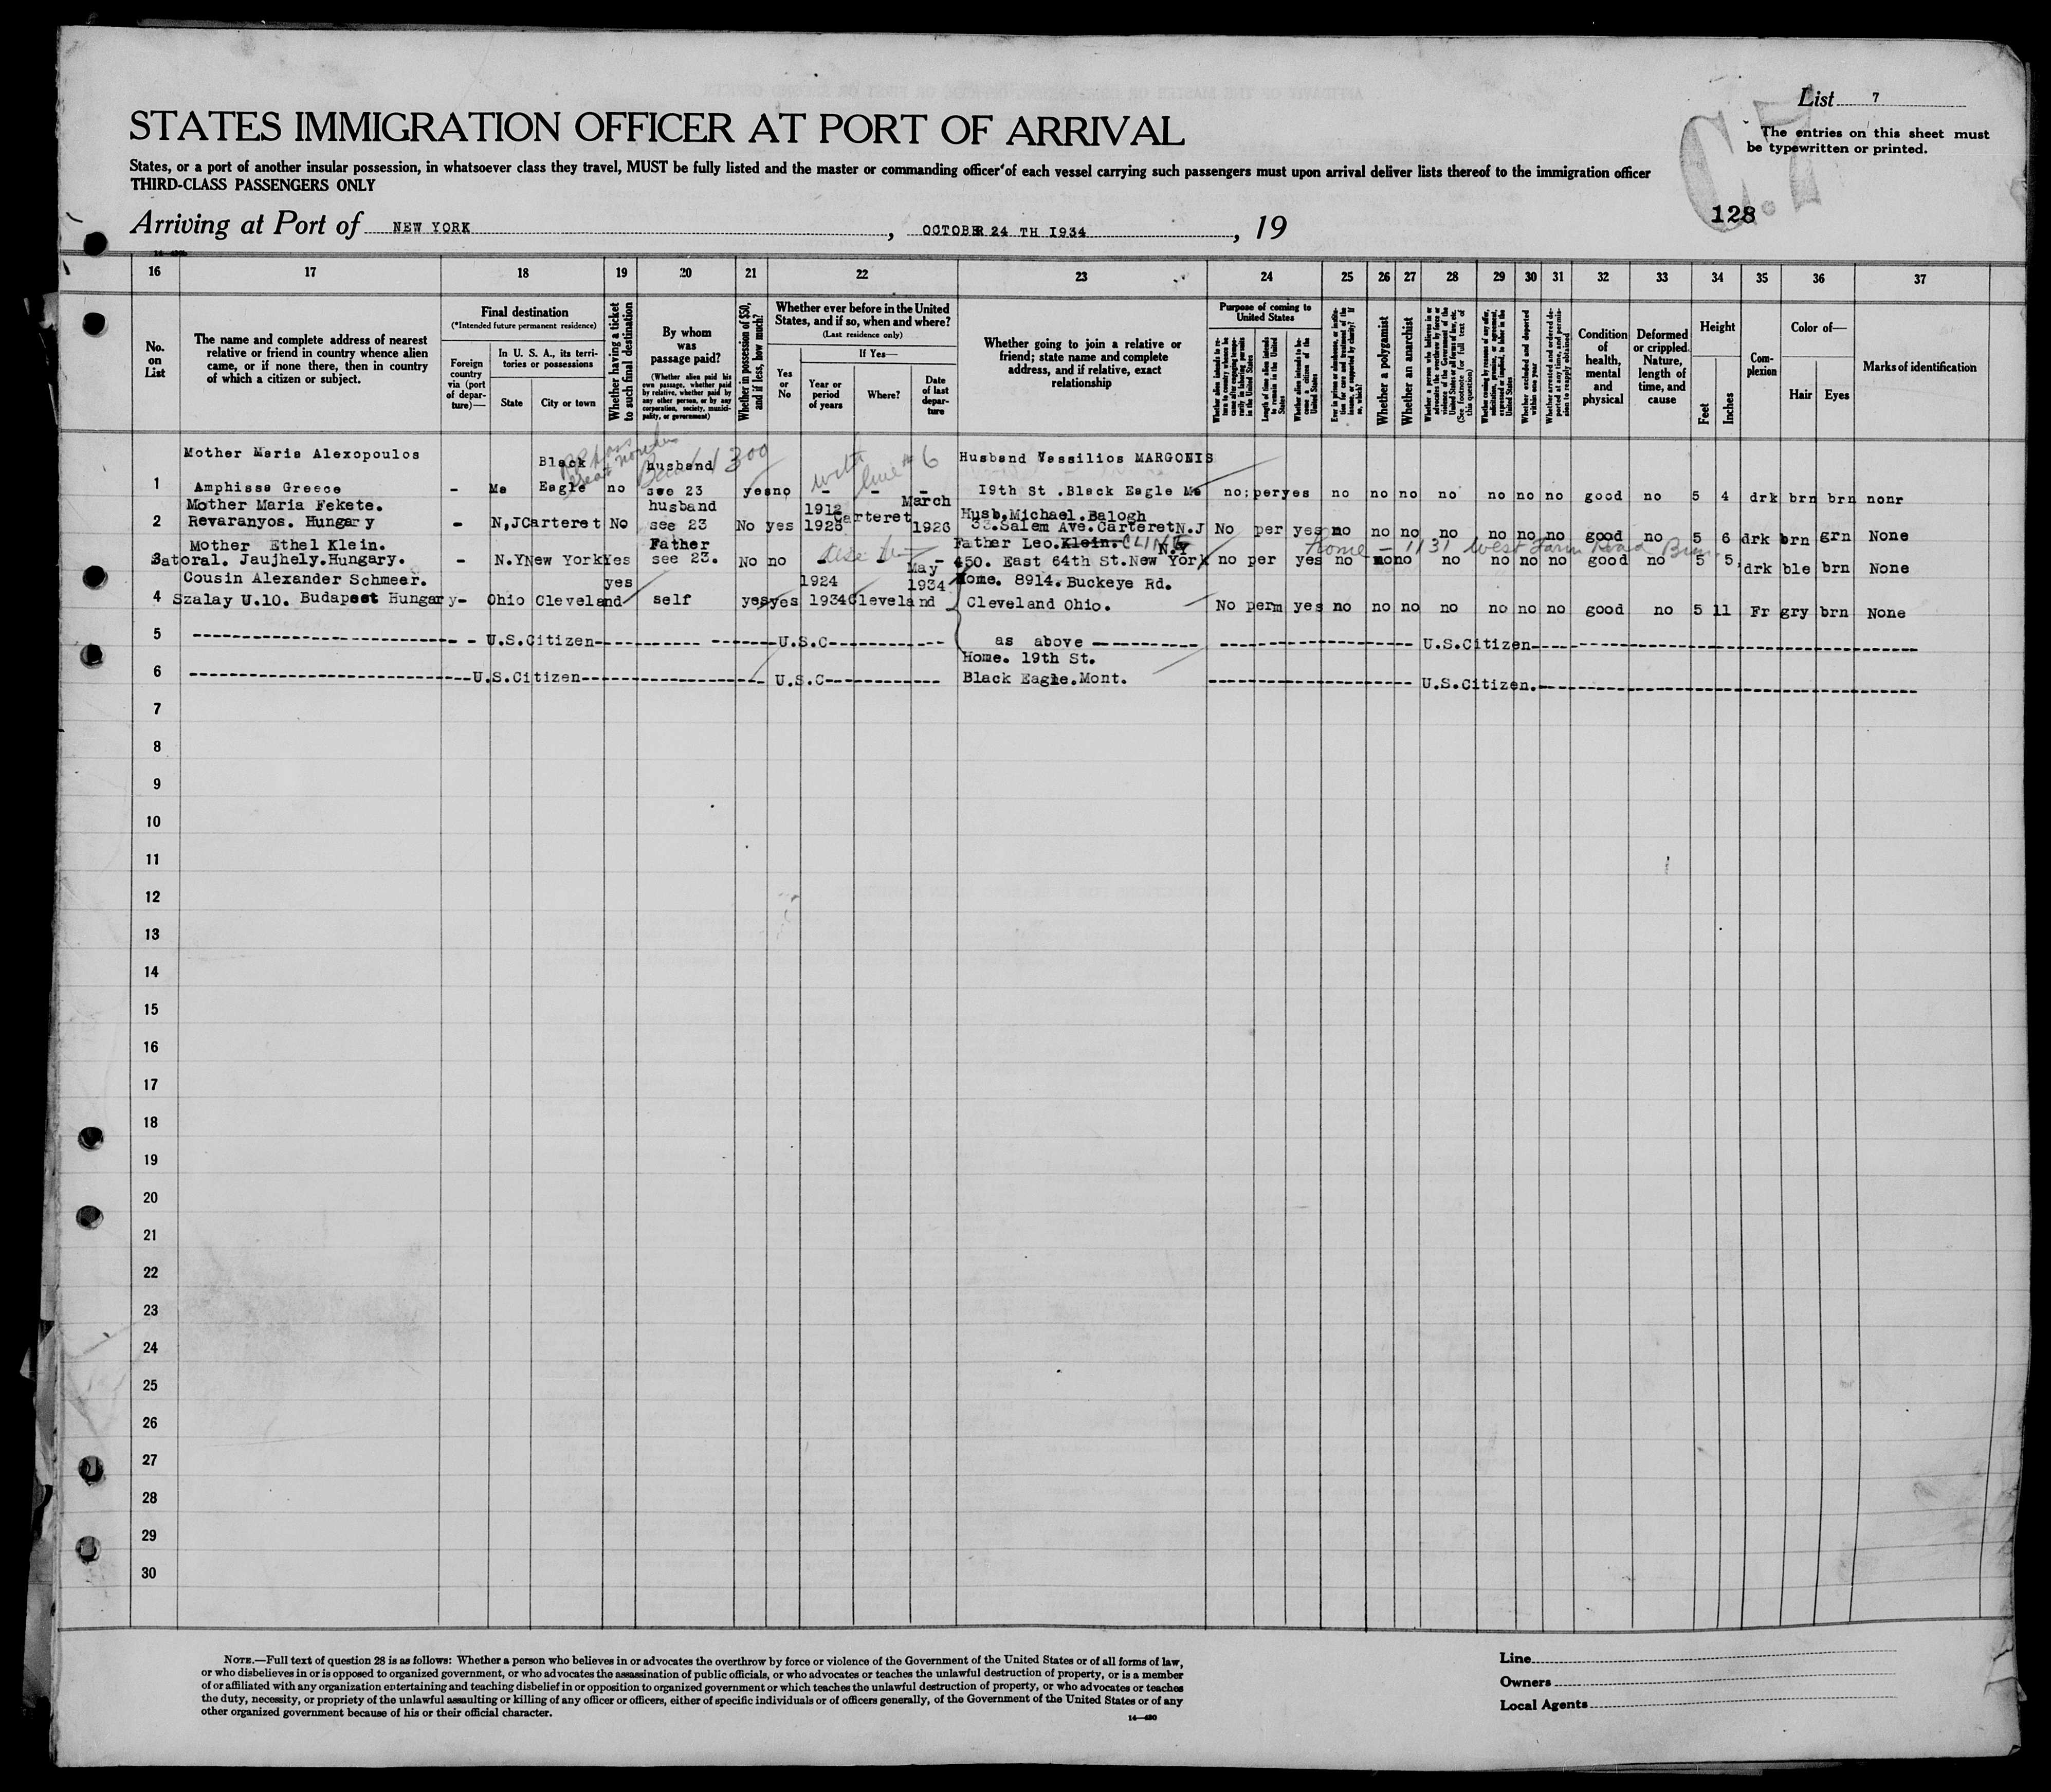 List 7
STATES IMMIGRATION OFFICER AT PORT OF ARRIVAL
The entries on this sheet must
be typewritten or printed.
States, or a port of another insular possession, in whatsoever class they travel, MUST be fully listed and the master or commanding officer of each vessel carrying such passengers must upon arrival deliver lists thereof to the immigration officer
THIRD-CLASS PASSENGERS ONLY
C.7
128
Arriving at Port of NEW YORK, OCTOBER 24 TH 1934, 19
16 17 18 19 20 21 22 23 24 25 26 27 28 29 30 31 32 33 34 35 36 37
No.
on
List
The name and complete address of nearest
relative or friend in country whence alien
came, or if none there, then in country
of which a citizen or subject.
Final destination
(*Intended future permanent residence)
Foreign
country
via (port
of depar-
ture)—
In U. S. A., its terri-
tories or possessions
State
City or town
Whether having a ticket
to such final destination
By whom
was
passage paid?
(Whether alien paid his
own passage, whether paid
by relative, whether paid by
any other person, or by any
corporation, society, munici-
pality, or government)
Whether in possession of $50,
and if less, how much?
Whether ever before in the United
States, and if so, when and where?
(Last residence only)
Yes
or
No
If Yes—
Year or
period
of years
Where?
Date
of last
depar-
ture
Whether going to join a relative or
friend; state name and complete
address, and if relative, exact
relationship
Purpose of coming to
United States
Whether alien intends to re-
turn to country whence he
came after engaging tempo-
rarily in laboring pursuits
in the United States
Length of time alien intends
to remain in the United
States
Whether alien intends to be-
come a citizen of the
United States
Ever in prison or almshouse, or institu-
tion for care and treatment of the
insane, or supported by charity? If
so, which?
Whether a polygamist
Whether an anarchist
Whether a person who believes in or
advocates the overthrow by force or
violence of the Government of the
United States or all forms of law, etc.
(See footnote for full text of
this question)
Whether coming by reason of any offer,
solicitation, promise, or agreement,
expressed or implied, to labor in the
United States
Whether excluded and deported
within one year
Whether arrested and ordered de-
ported at any time, and permis-
sion to reapply obtained
Condition
of
health,
mental
and
physical
Deformed
or crippled.
Nature,
length of
time, and
cause
Height
Feet
Inches
Com-
plexion
Color of—
Hair
Eyes
Marks of identification
Mother Maria Alexopoulos Black husband 300 with line # 6 Husband Vassilios MARGONIS
1 Amphissa Greece - Ma Eagle no see 23 yes no - - - 19th St .Black Eagle Ma no; per yes no no no no no no no good no 5 4 drk brn brn nonr
Mother Maria Fekete. husband 1912 March Husb.Michael.Balogh
2 Revaranyos. Hungary - N,J Carteret No see 23 No yes 1926 Carteret 1926 33.Salem Ave.Carteret N.J No per yes no no no no no no no good no 5 6 drk brn grn None
Mother Ethel Klein. Father Father Leo.Klein. CLINE N.Y Home - 1131 West Farm Road
3 Satoral. Jaujhely.Hungary. - N.Y New York Yes see 23. No no - - - 450. East 64th St.New York no per yes no no no no no no no good no 5 5 drk ble brn None
Cousin Alexander Schmeer. yes 1924 May 1934 Home. 8914. Buckeye Rd.
4 Szalay U.10. Budapest Hungary- Ohio Cleveland self yes yes 1934 Cleveland Cleveland Ohio. No perm yes no no no no no no no good no 5 11 Fr gry brn None
5 - U.S.Citizen- U.S.C- as above - U.S.Citizen-
Home. 19th St.
6 -U.S.Citizen- U.S.C- Black Eagle.Mont. - U.S.Citizen.-
7
8
9
10
11
12
13
14
15
16
17
18
19
20
21
22
23
24
25
26
27
28
29
30
NOTE.—Full text of question 28 is as follows: Whether a person who believes in or advocates the overthrow by force or violence of the Government of the United States or of all forms of law,
or who disbelieves in or is opposed to organized government, or who advocates the assassination of public officials, or who advocates or teaches the unlawful destruction of property, or is a member
of or affiliated with any organization entertaining and teaching disbelief in or opposition to organized government or which teaches the unlawful destruction of property, or who advocates or teaches
the duty, necessity, or propriety of the unlawful assaulting or killing of any officer or officers, either of specific individuals or of officers generally, of the Government of the United States or of any
other organized government because of his or their official character.
14—430
Line
Owners
Local Agents